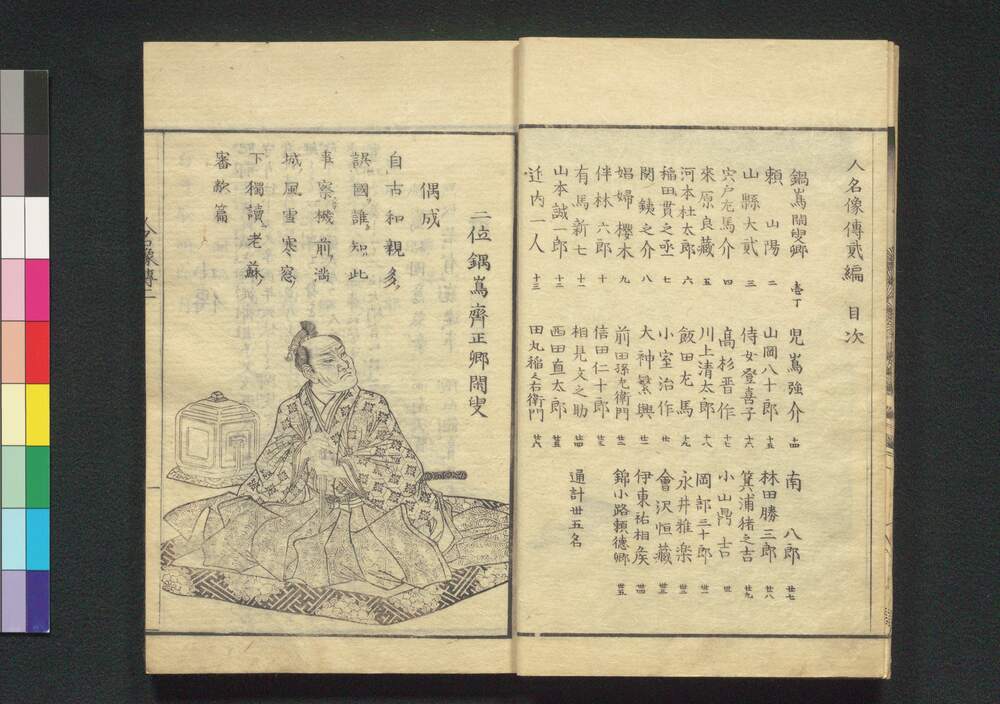 人名像傳貳編　目次
鍋嶌閑叟卿　壱丁
頼山陽　二
山縣大貳　三
宍戸左馬介　四
來原良藏　五
河本杜太郎　六
稲田貫之丞　七
関銕之介　八
娼婦櫻木　九
伴林六郎　十
有馬新七　十一
山本誠一郎　十二
近内一人　十三
児嶌強介　十四
山岡八十郎　十五
侍女登喜子　十六
髙杉晋作　十七
川上清太郎　十八
飯田左馬　十九
小室治作　廿
大神繁興　廿一
前田孫左衛門　廿二
信田仁十郎　廿三
相見文之助　廿四
西田直太郎　廿五
田丸稲之右衛門　廿六
南八郎　廿七
林田勝三郎　廿八
箕浦猪之吉　廿九
小山鼎吉　卅
岡部三十郎　卅一
永井雅楽　卅二
會沢恒藏　卅三
伊東祐相矦　卅四
錦小路頼德卿　卅五
通計卅五名
二位鍋嶌齊正卿閑叟
偶成
自古和親多
誤國誰知此
事察機前満
城風雪寒窓
下獨讀老蘇
審敵篇